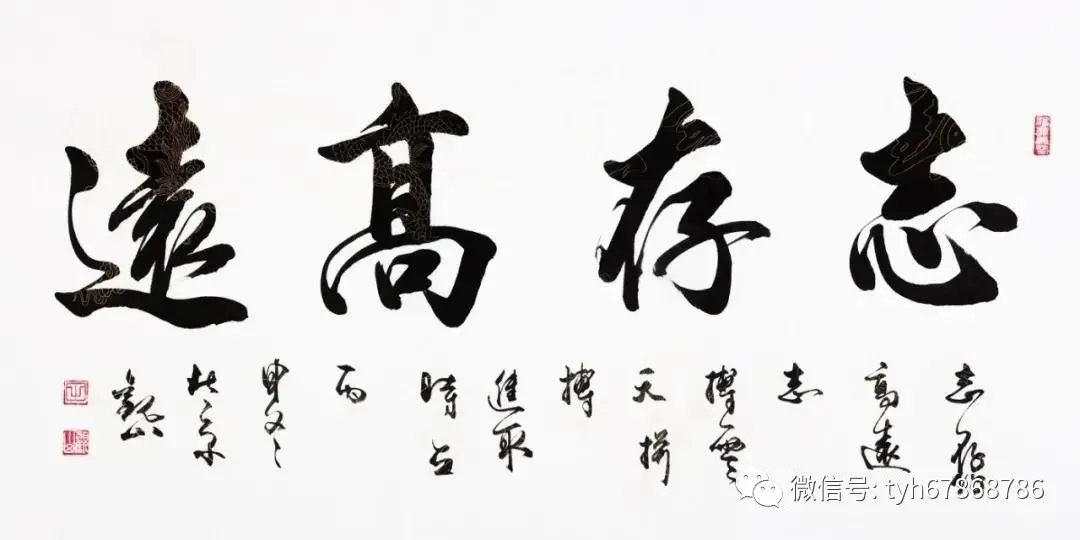 志存高遠
志存
高遠
志
搏雲
天拚
搏
進取
時
丙
申
北京
微信号: tyh67868786